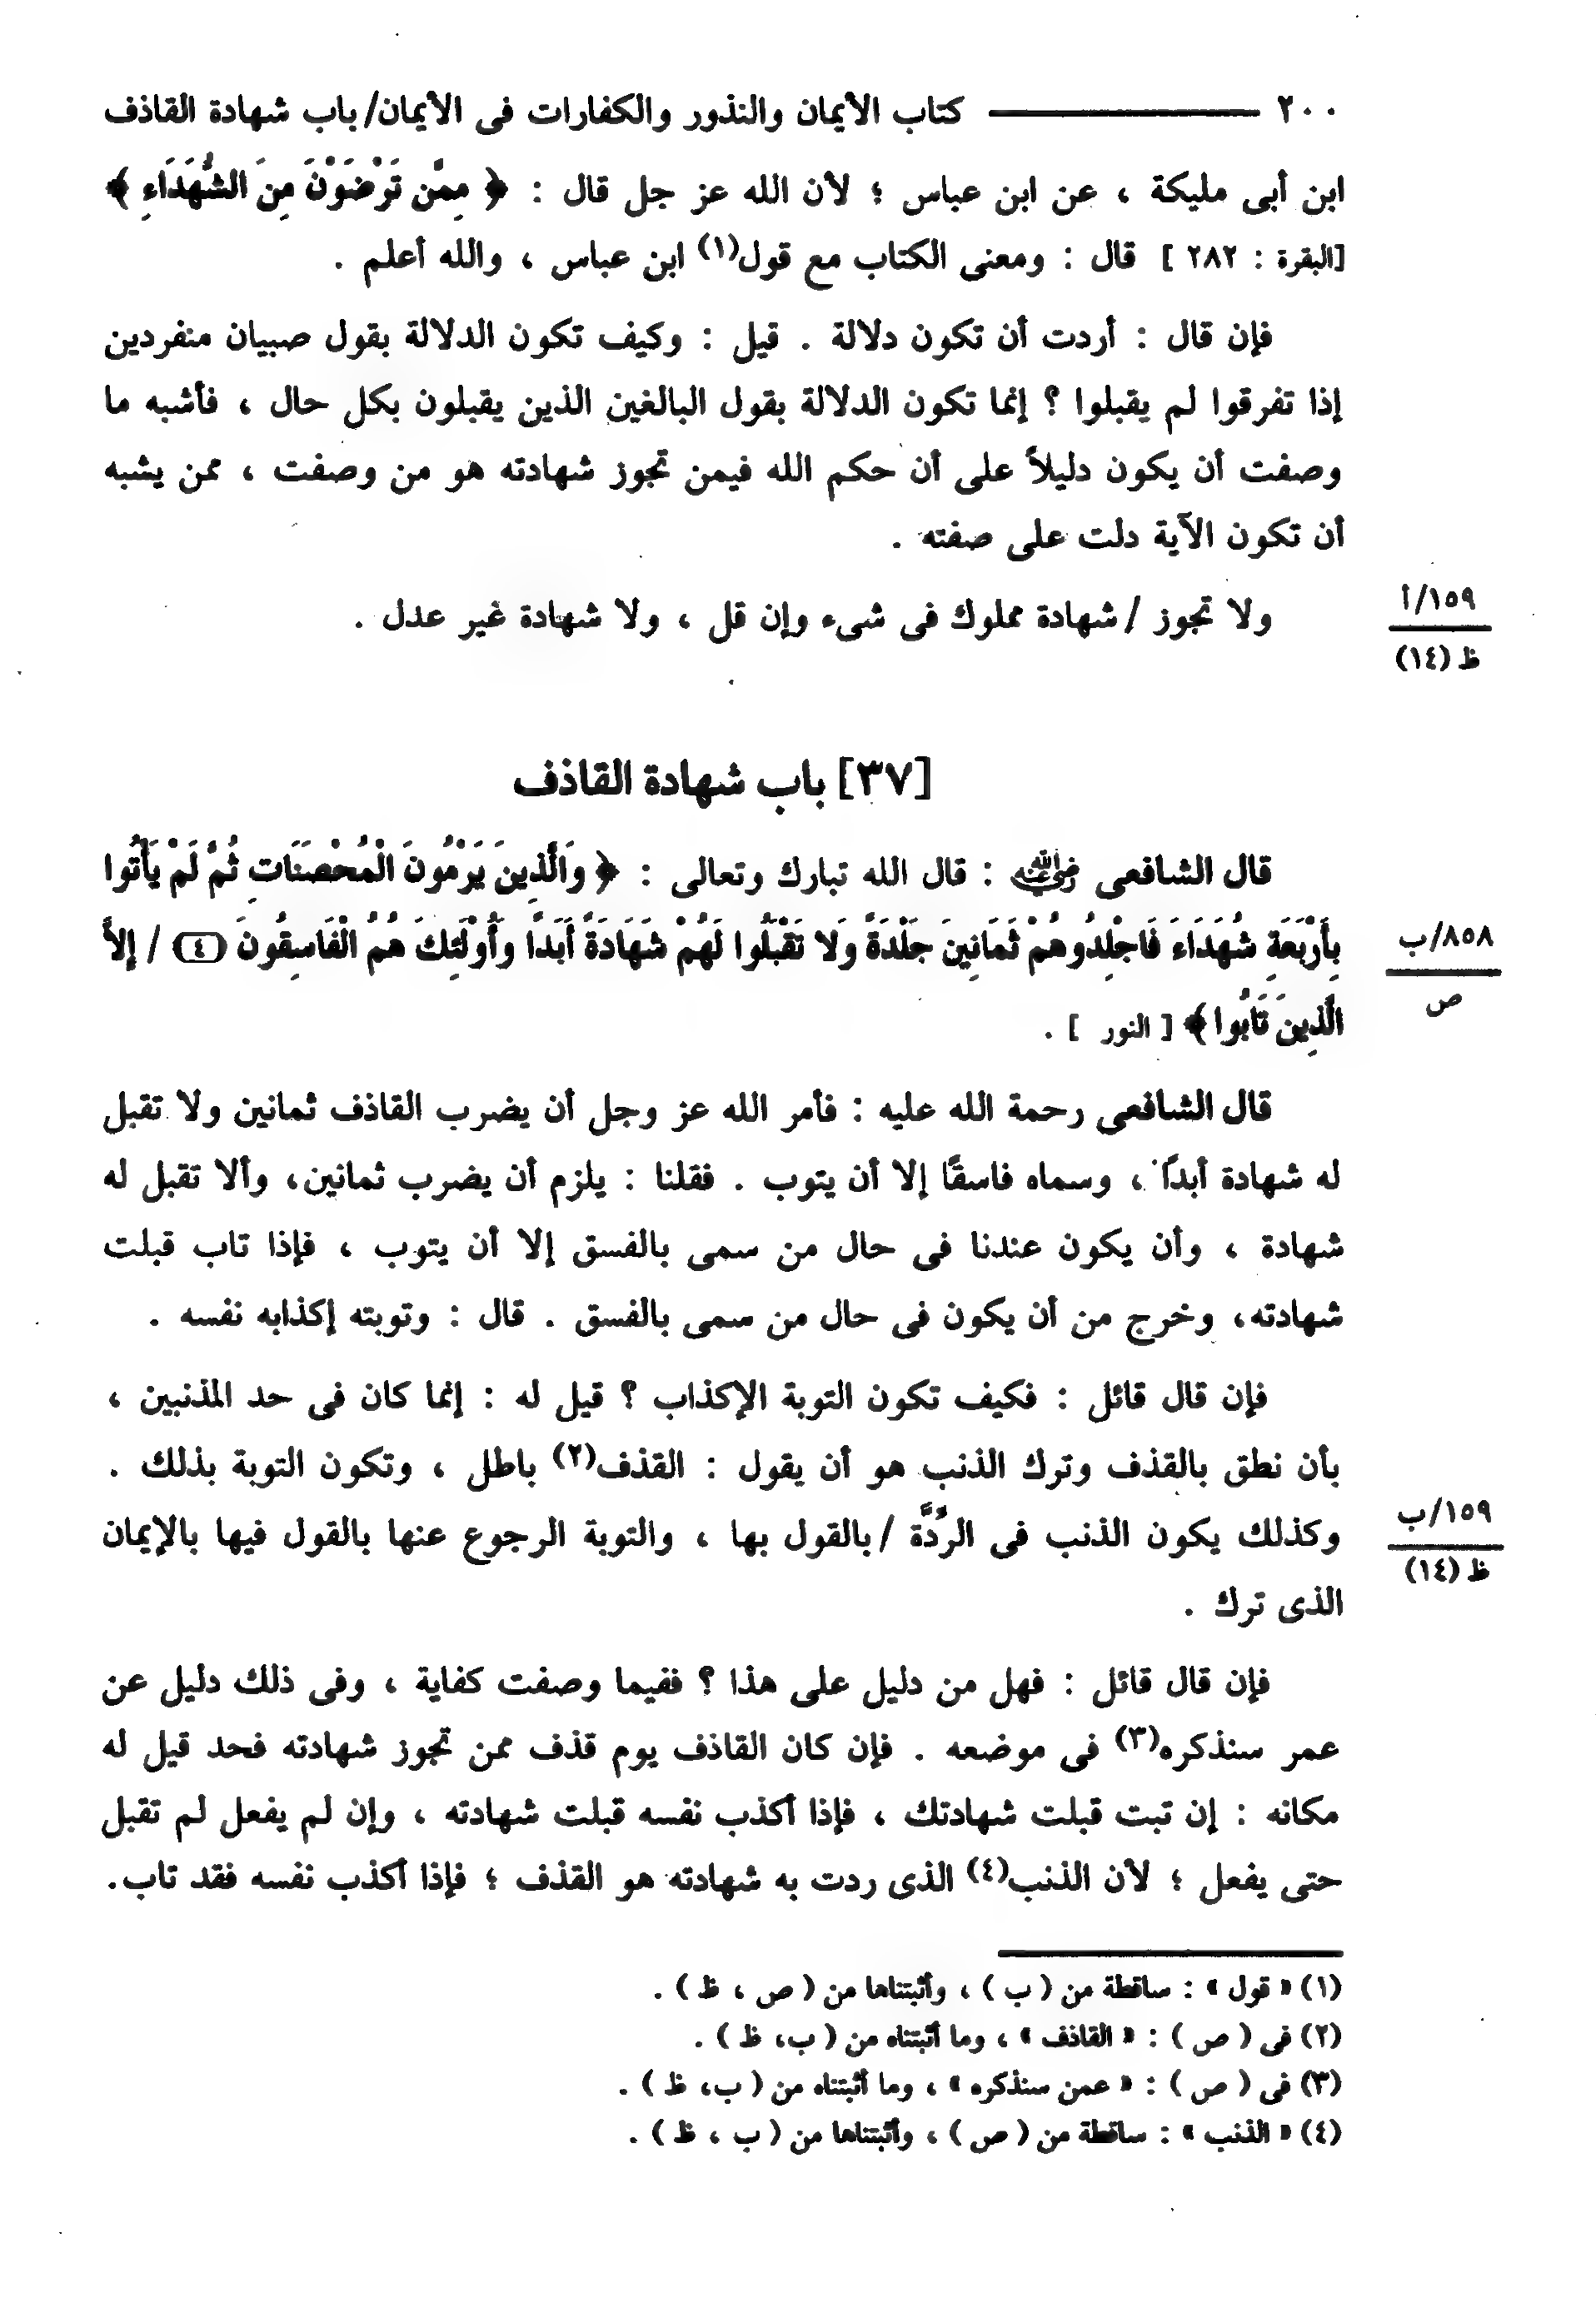 ٢٠٠ ـــــــ كتاب الأيمان والنذور والكفارات فى الأيمان/ باب شهادة القاذف
ابن أبى مليكة ، عن ابن عباس ؛ لأن الله عز جل قال : ﴿ مِمَّن تَرْضَوْنَ مِنَ الشُّهَدَاءِ ﴾
[البقرة : ٢٨٢ ] قال : ومعنى الكتاب مع قول(١) ابن عباس ، والله أعلم .
فإن قال : أردت أن تكون دلالة . قيل : وكيف تكون الدلالة بقول صبيان منفردين
إذا تفرقوا لم يقبلوا ؟ إنما تكون الدلالة بقول البالغين الذين يقبلون بكل حال ، فأشبه ما
وصفت أن يكون دليلاً على أن حكم الله فيمن تجوز شهادته هو من وصفت ، ممن يشبه
أن تكون الآية دلت على صفته .
ولا تجوز / شهادة مملوك فى شىء وإن قل ، ولا شهادة غير عدل .
١٥٩/أ
ظ (١٤)
[٣٧] باب شهادة القاذف
قال الشافعى رضي الله عنه : قال الله تبارك وتعالى : ﴿ وَالَّذِينَ يَرْمُونَ الْمُحْصَنَاتِ ثُمَّ لَمْ يَأْتُوا
بِأَرْبَعَةِ شُهَدَاءَ فَاجْلِدُوهُمْ ثَمَانِينَ جَلْدَةً وَلا تَقْبَلُوا لَهُمْ شَهَادَةً أَبَدًا وَأُوْلَئِكَ هُمُ الْفَاسِقُونَ (٤) / إِلاَّ
٨٥٨/ب
ص
الَّذِينَ تَابُوا ﴾ [ النور ] .
قال الشافعى رحمة الله عليه : فأمر الله عز وجل أن يضرب القاذف ثمانين ولا تقبل
له شهادة أبدًا ، وسماه فاسقًا إلا أن يتوب . فقلنا : يلزم أن يضرب ثمانين، وألا تقبل له
شهادة ، وأن يكون عندنا فى حال من سمى بالفسق إلا أن يتوب ، فإذا تاب قبلت
شهادته، وخرج من أن يكون فى حال من سمى بالفسق . قال : وتوبته إكذابه نفسه .
فإن قال قائل : فكيف تكون التوبة الإكذاب ؟ قيل له : إنما كان فى حد المذنبين ،
بأن نطق بالقذف وترك الذنب هو أن يقول : القذف(٢) باطل ، وتكون التوبة بذلك .
وكذلك يكون الذنب فى الرُدَّة / بالقول بها ، والتوبة الرجوع عنها بالقول فيها بالإيمان
١٥٩/ب
ظ (١٤)
الذى ترك .
فإن قال قائل : فهل من دليل على هذا ؟ ففيما وصفت كفاية ، وفى ذلك دليل عن
عمر سنذكره(٣) فى موضعه . فإن كان القاذف يوم قذف ممن تجوز شهادته فحد قيل له
مكانه : إن تبت قبلت شهادتك ، فإذا أكذب نفسه قبلت شهادته ، وإن لم يفعل لم تقبل
حتى يفعل ؛ لأن الذنب(٤) الذى ردت به شهادته هو القذف ؛ فإذا أكذب نفسه فقد تاب.
(١) « قول » : ساقطة من ( ب ) ، وأثبتناها من ( ص ، ظ ) .
(٢) فى ( ص ) : « القاذف » ، وما أثبتناه من ( ب، ظ ) .
(٣) فى ( ص ) : « عمن سنذكره » ، وما أثبتناه من ( ب، ظ ) .
(٤) « الذنب » : ساقطة من ( ص ) ، وأثبتناها من ( ب ، ظ ) .